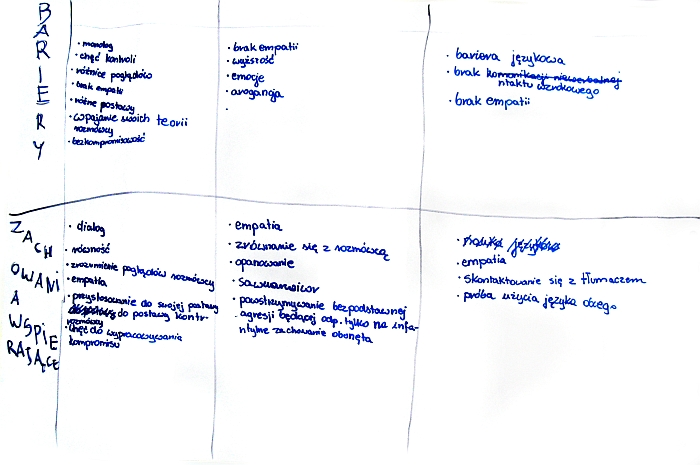 BARIERY
• monolog
• chęć kontroli
• różnice poglądów
• brak empatii
• różne postawy
• wpajanie swoich teorii
rozmówcy
• bezkompromisowość
• brak empatii
• wyższość
• emocje
• arogancja
•
• bariera językowa
• brak komunikacji niewerbalnej
ntaktu wzrokowego
• brak empatii
ZACHOWANIA WSPIERAJĄCE
• dialog
• równość
• zrozumienie poglądów rozmówcy
• empatia
• przystosowanie do swojej postawy
do postawy kontr-
rozmówcy
• chęć do wypracowywania
kompromisu
• empatia
• zrównanie się z rozmówcą
• opanowanie
• powstrzymywanie bezpodstawnej
agresji będącej odp. tylko na infa-
ntylne zachowanie oponęta
• nauka języków
• empatia
• skontaktowanie się z tłumaczem
• próba użycia języka obcego